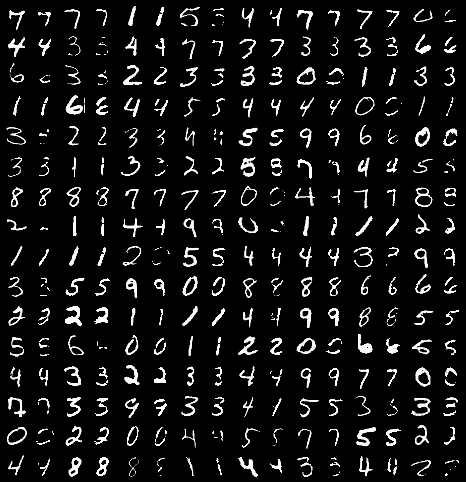 7 7 7 7 1 1 5 5 4 4 7 7 7 7 0
4 4 3 3 4 4 7 7 3 7 3 3 3 3 6 6
6 3 3 2 2 3 3 3 3 0 0 1 1 3 3
1 1 6 4 4 5 5 4 4 4 4 0 0 1 1
3 2 2 3 3 4 4 5 5 9 9 6 6 0 0
3 3 1 1 3 3 2 2 5 8 7 7 4 4 5 5
8 8 8 8 7 7 7 7 0 0 4 4 7 7 8 8
2 1 1 4 4 9 9 0 1 1 1 1 2 2
1 1 1 1 2 0 5 5 4 4 4 4 3 9 9
3 3 5 5 9 9 0 0 8 8 8 8 6 6 6 6
2 2 2 2 1 1 1 1 4 4 9 9 8 8 5 5
5 6 0 0 1 1 2 2 0 0 6 6 5 5
4 4 3 3 2 2 3 3 4 4 9 9 7 7 0 0
7 7 3 3 9 9 3 3 4 1 5 5 3 3 3 3
0 0 2 2 0 0 4 4 5 5 7 7 5 5 2 2
4 4 8 8 8 1 1 4 4 3 3 4 4 2